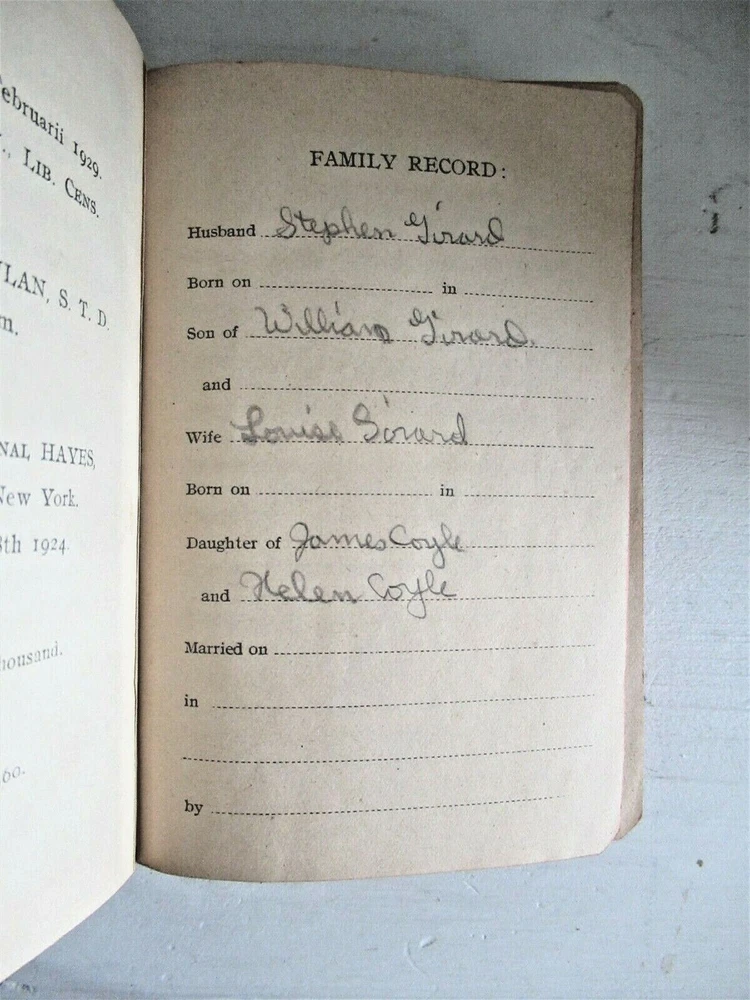 ebruarii 1929.
., LIB. CENS.
LAN, S. T. D.
m.
NAL HAYES,
New York.
8th 1924
housand.
60.
FAMILY RECORD:
Husband Stephen Girard
Born on in
Son of William Girard.
and
Wife Louise Girard
Born on in
Daughter of James Coyle
and Helen Coyle
Married on
in
by